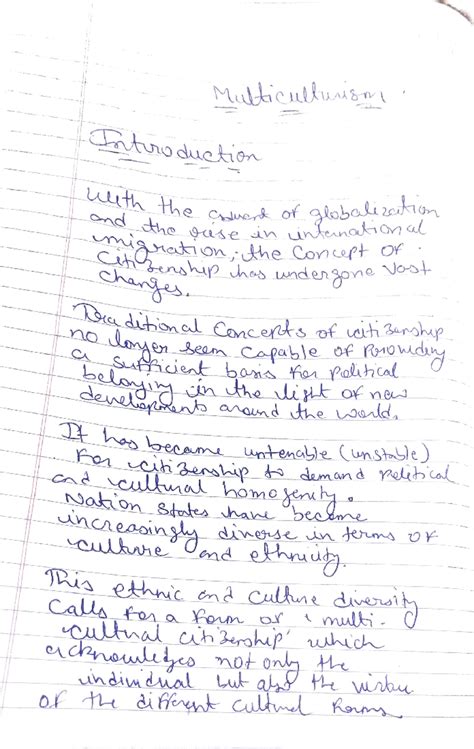 Multiculturism
Introduction
With the advent of globalization
and the rise in international
migration, the Concept of
Citizenship has undergone Vast
Changes.
Traditional Concepts of citizenship
no longer seem Capable of Providing
a sufficient basis for political
belonging in the light of new
developments around the world.
It has became untenable (unstable)
for citizenship to demand political
and cultural homogenity.
Nation States have become
increasingly diverse in terms of
culture and ethnicity.
This ethnic and culture diversity
Calls for a form of 'multi-
cultural citizenship' which
acknowledges not only the
individual but also the virtue
of the different cultural forms